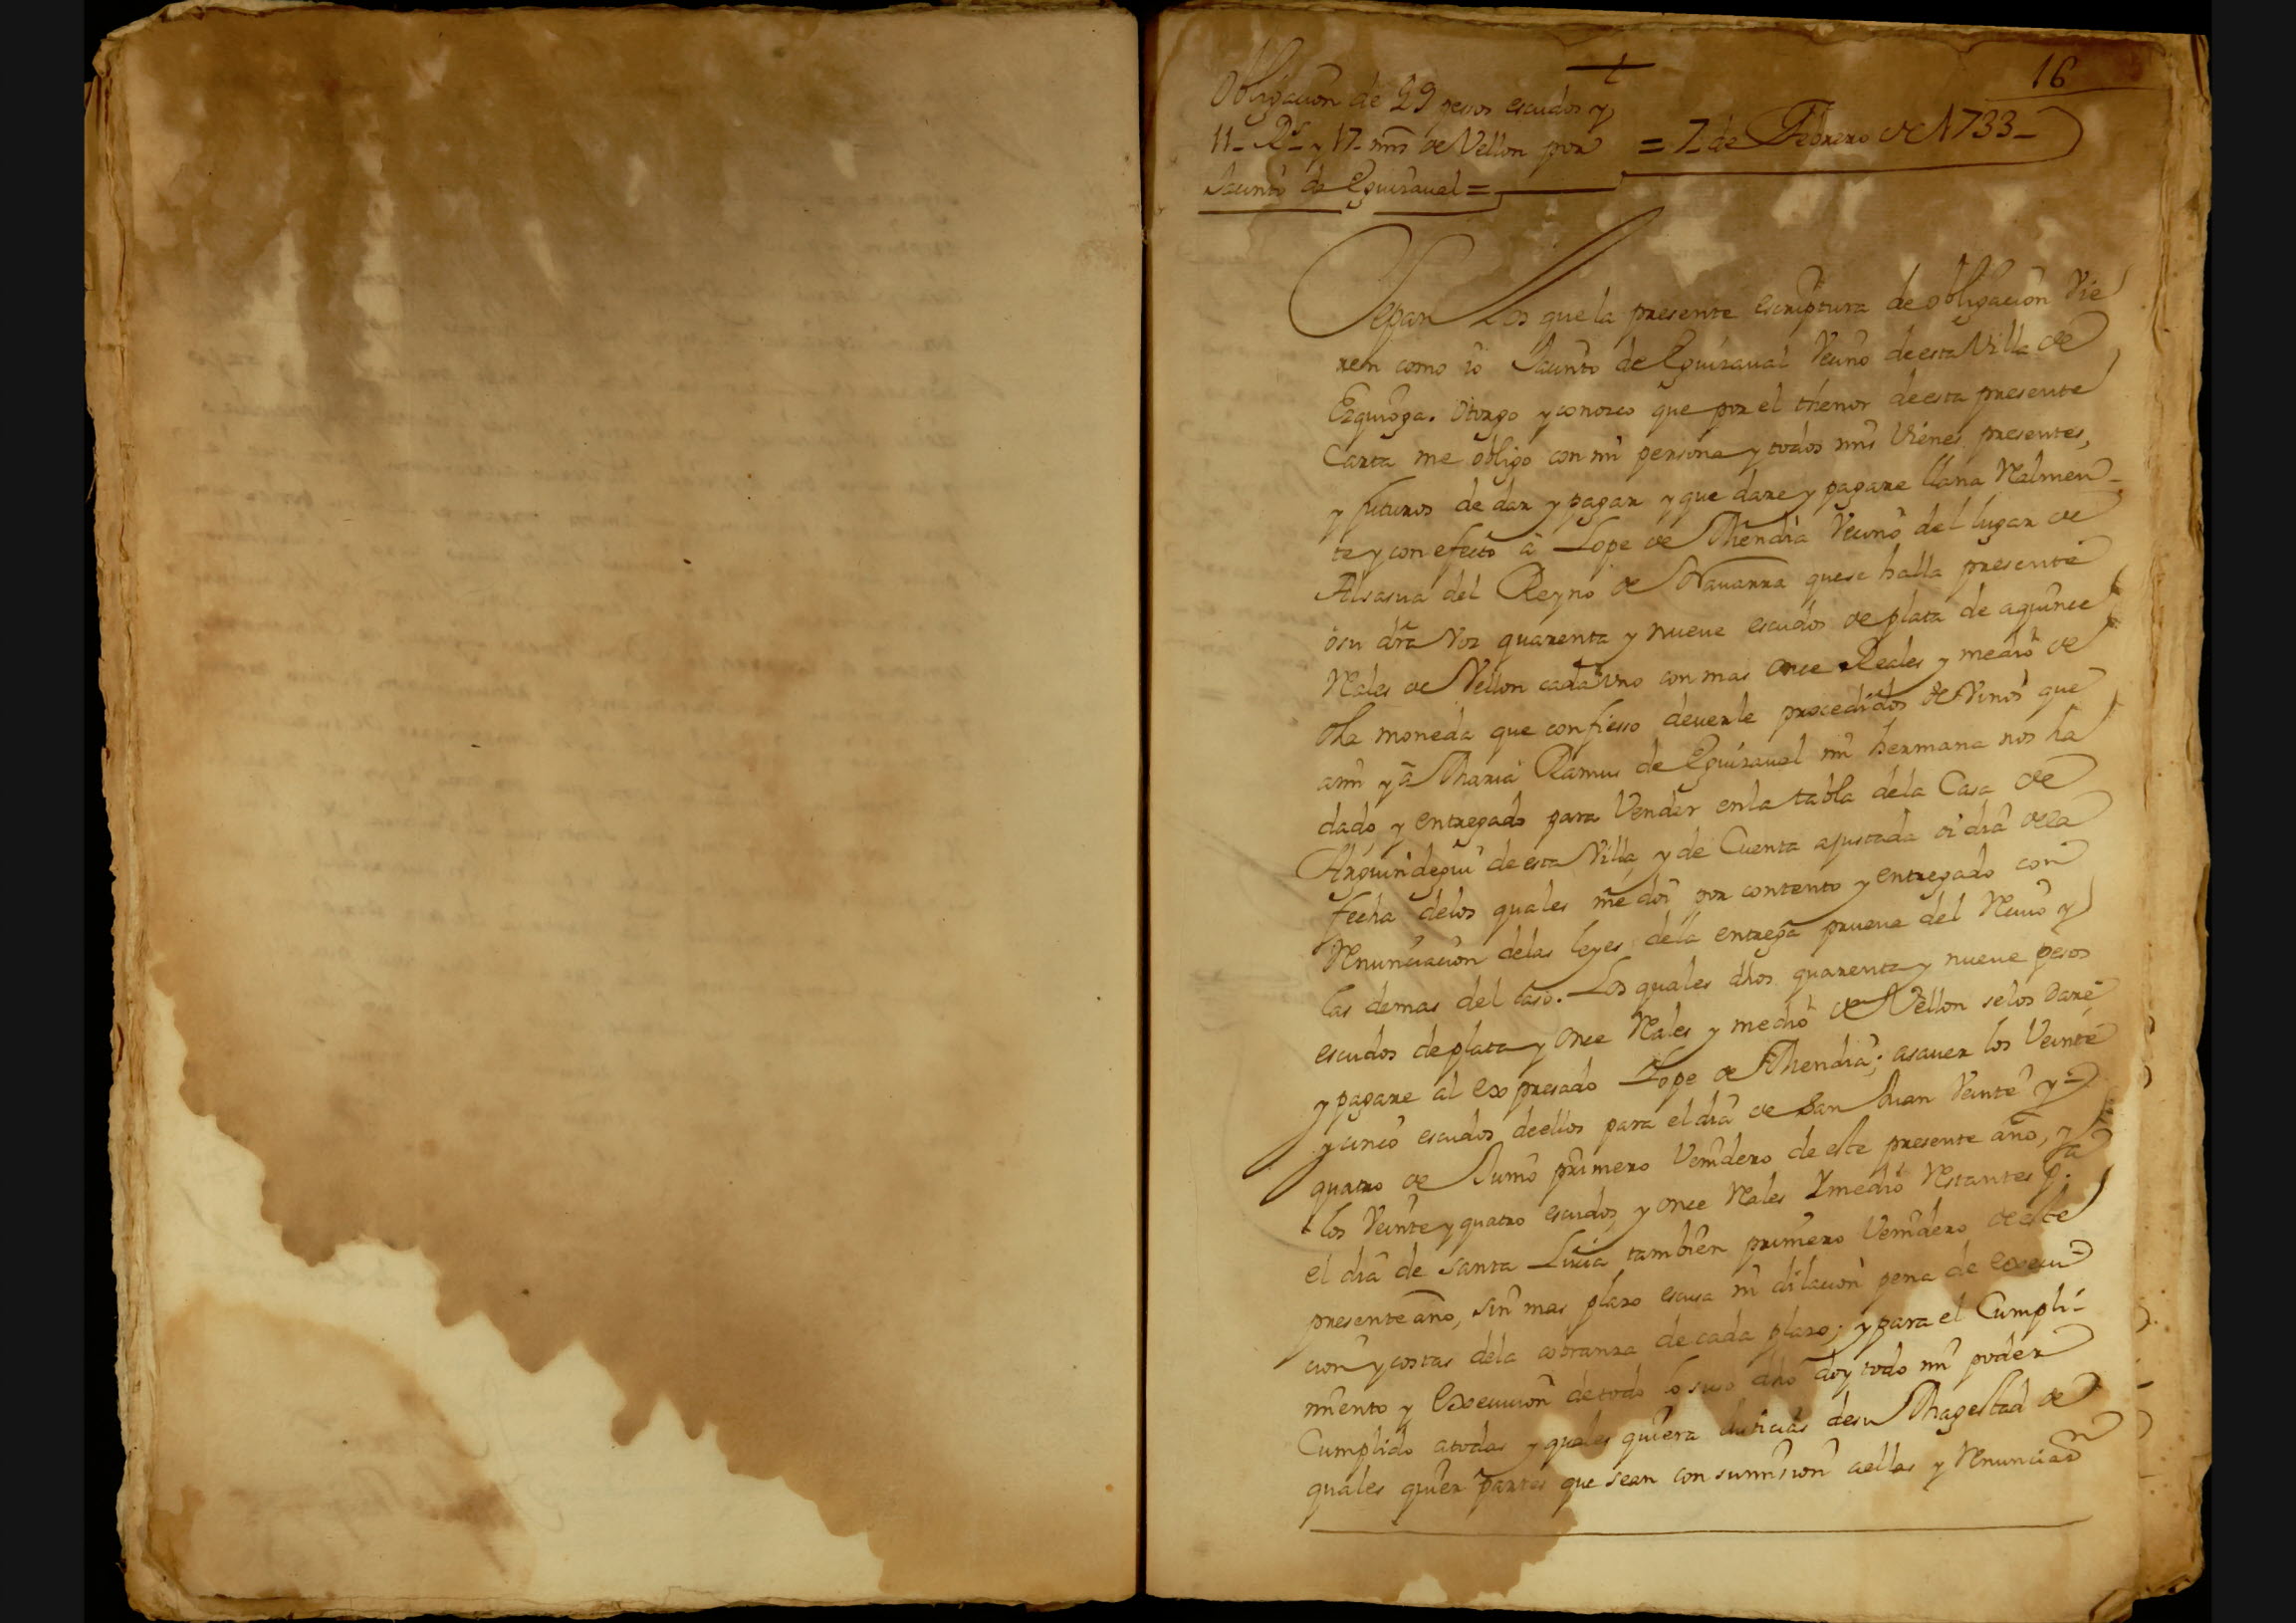 16
Obligacion de 49 pesos escudos y
11_ Rs_ y 17_ mrs de Vellon por
Jacinto de Eguizaual =
= 7_ de Febrero de 1733_
Sepan Los que la presente escriptura de obligacion Vie
ren como io Jacinto de Eguizaual Vecino de esta Villa de
Ezquioga. Otorgo y conozco que por el thenor de esta presente
Carta me obligo con mi persona y todos mis Vienes presentes,
y futuros de dar y pagar y que dare y pagare llana Realmen_
te y con efecto â Lope de Mendia Vecino del lugar de
Alsasua del Reyno de Nauarra que se halla presente
o su dra Voz quarenta y nueve escudos de plata de a quince
Reales de Vellon cada uno con mas once Reales y medio de
dha moneda que confiesso deuerle procedidos de Vinos que
a mi y â Maria Ramus de Eguizaual mi hermana nos ha
dado y entregado para Vender en la tabla dela Casa de
Arguindegui de esta Villa, y de Cuenta ajustada oi dia dela
fecha delos quales me doi por contento y entregado con
Renunciacion delas leyes dela entrega prueua del Reciuo y
las demas del caso. Los quales dhos quarenta y nueve pesos
escudos de plata y once Reales y medio de Vellon se los dare
y pagare al expresado Lope de Mendia; asauer los Veinte
y cinco escudos de ellos para el dia de San Juan Veinte y
quatro de Junio primero Venidero de este presente año, y a
los Veinte y quatro escudos y once Reales Y medio Restantes p.
el dia de santa Lucia tambien primero Venidero de este
presente año, sin mas plazo escusa ni dilacion pena de execu
cion y costas dela cobranza de cada plazo; y para el Cumpli_
miento y Execucion de todo lo suso dho doy todo mi poder
Cumplido a todas y quales quiera Justicias de su Magestad de
quales quier partes que sean con sumision a ellas y Renunciaon